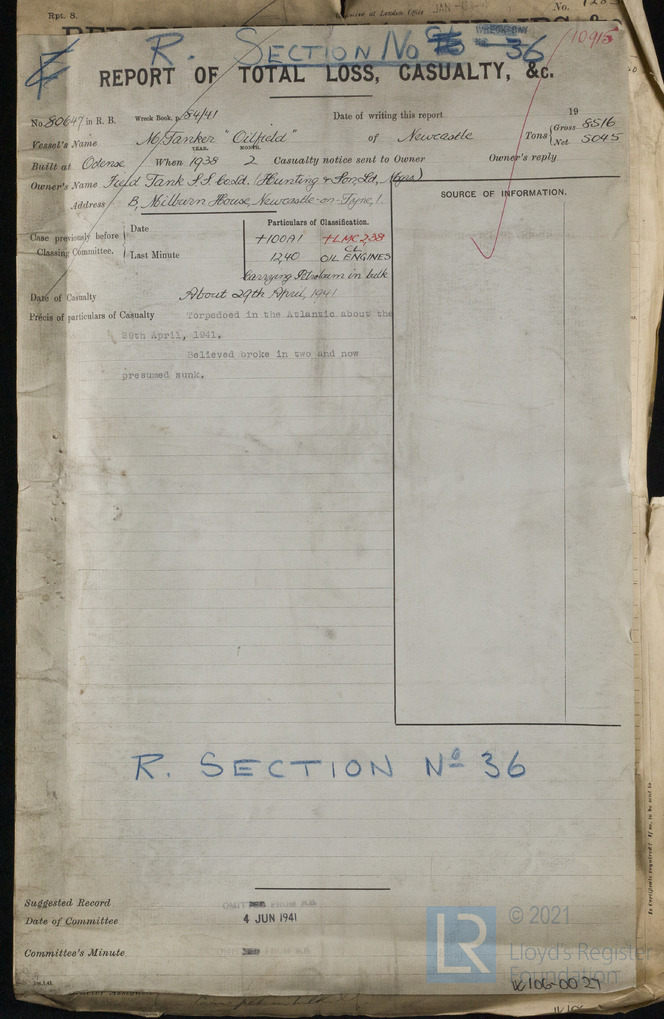 Rpt. 8.
No. 1283
JAN
R. SECTION No 36
WRECK DAY
10915
REPORT OF TOTAL LOSS, CASUALTY, &c.
No. 80647 in R. B. Wreck Book, p. 84/41 Date of writing this report 19
Vessel's Name M/Tanker "Oilfield" of Newcastle Tons Gross 8516 Net 5045
YEAR. MONTH.
Built at Odense When 1938 2 Casualty notice sent to Owner Owner's reply
Owner's Name Field Tank S.S. Co Ld. (Hunting & Son, Ld, Mgrs)
Address B, Milburn House, Newcastle-on-Tyne, 1.
SOURCE OF INFORMATION.
Particulars of Classification.
Case previously before Classing Committee. Date
Last Minute
+100A1 +LMC 2,38
12,40 CL OIL ENGINES
Carrying Petroleum in bulk
Date of Casualty About 29th April, 1941
Précis of particulars of Casualty Torpedoed in the Atlantic about the
29th April, 1941.
Believed broke in two and now
presumed sunk.
R. SECTION No 36
Suggested Record
Date of Committee 4 JUN 1941
Committee's Minute
LR
© 2021
Lloyd's Register
Foundation
W106-0027